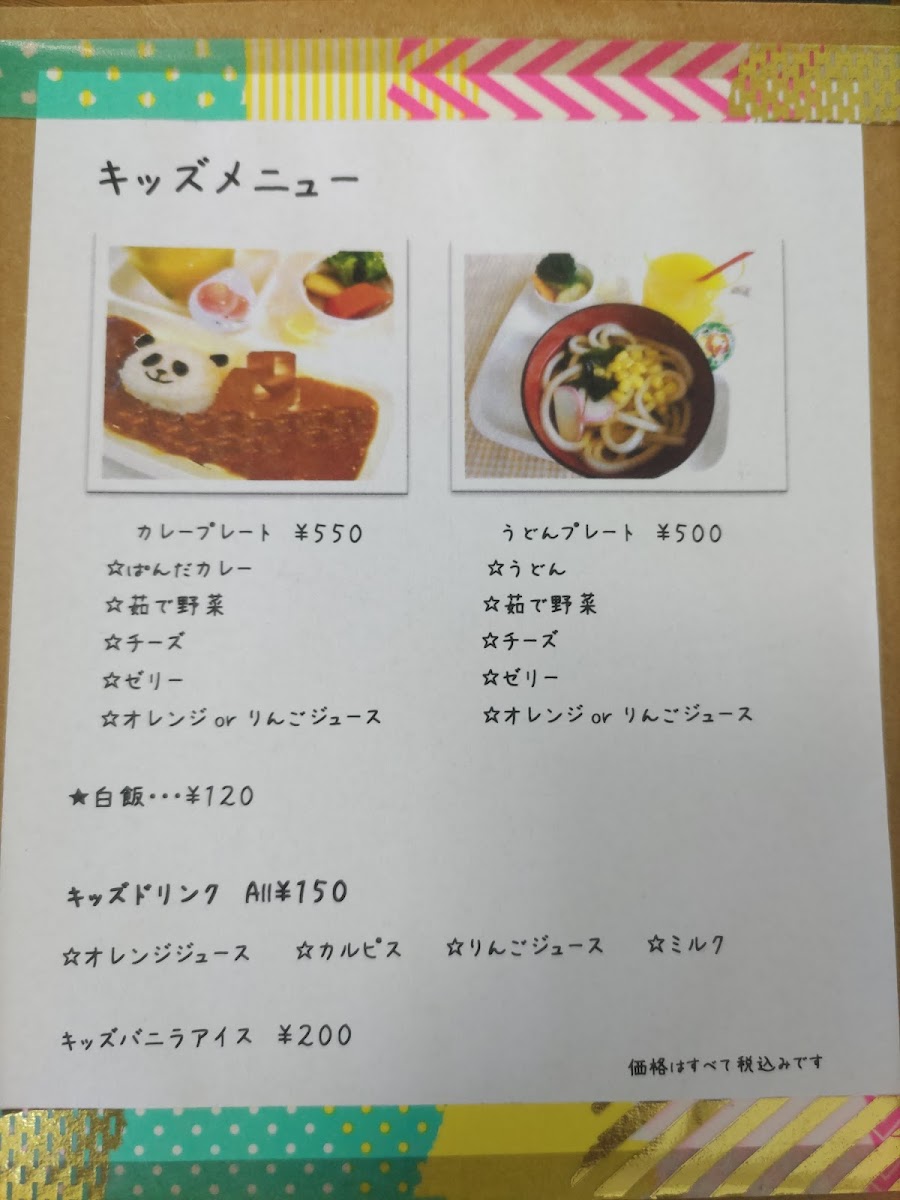 キッズメニュー
カレープレート ¥550
☆ぱんだカレー
☆茹で野菜
☆チーズ
☆ゼリー
☆オレンジ or りんごジュース
うどんプレート ¥500
☆うどん
☆茹で野菜
☆チーズ
☆ゼリー
☆オレンジ or りんごジュース
★白飯･･･¥120
キッズドリンク All¥150
☆オレンジジュース ☆カルピス ☆りんごジュース ☆ミルク
キッズバニラアイス ¥200
価格はすべて税込みです